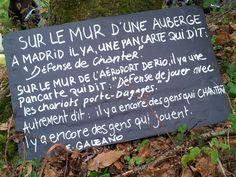 SUR LE MUR D'UNE AUBERGE
A MADRID IL YA, UNE PANCARTE QUI DIT:
"Défense de Chanter"
SUR LE MUR DE L'AÉROPORT DE RIO, il y a une
pancarte qui dit: "Défense de jouer avec
les chariots porte-bagages.
Autrement dit: il y a encore des gens qui CHANTENT
il y a encore des gens qui jouent.
E. GALEANO